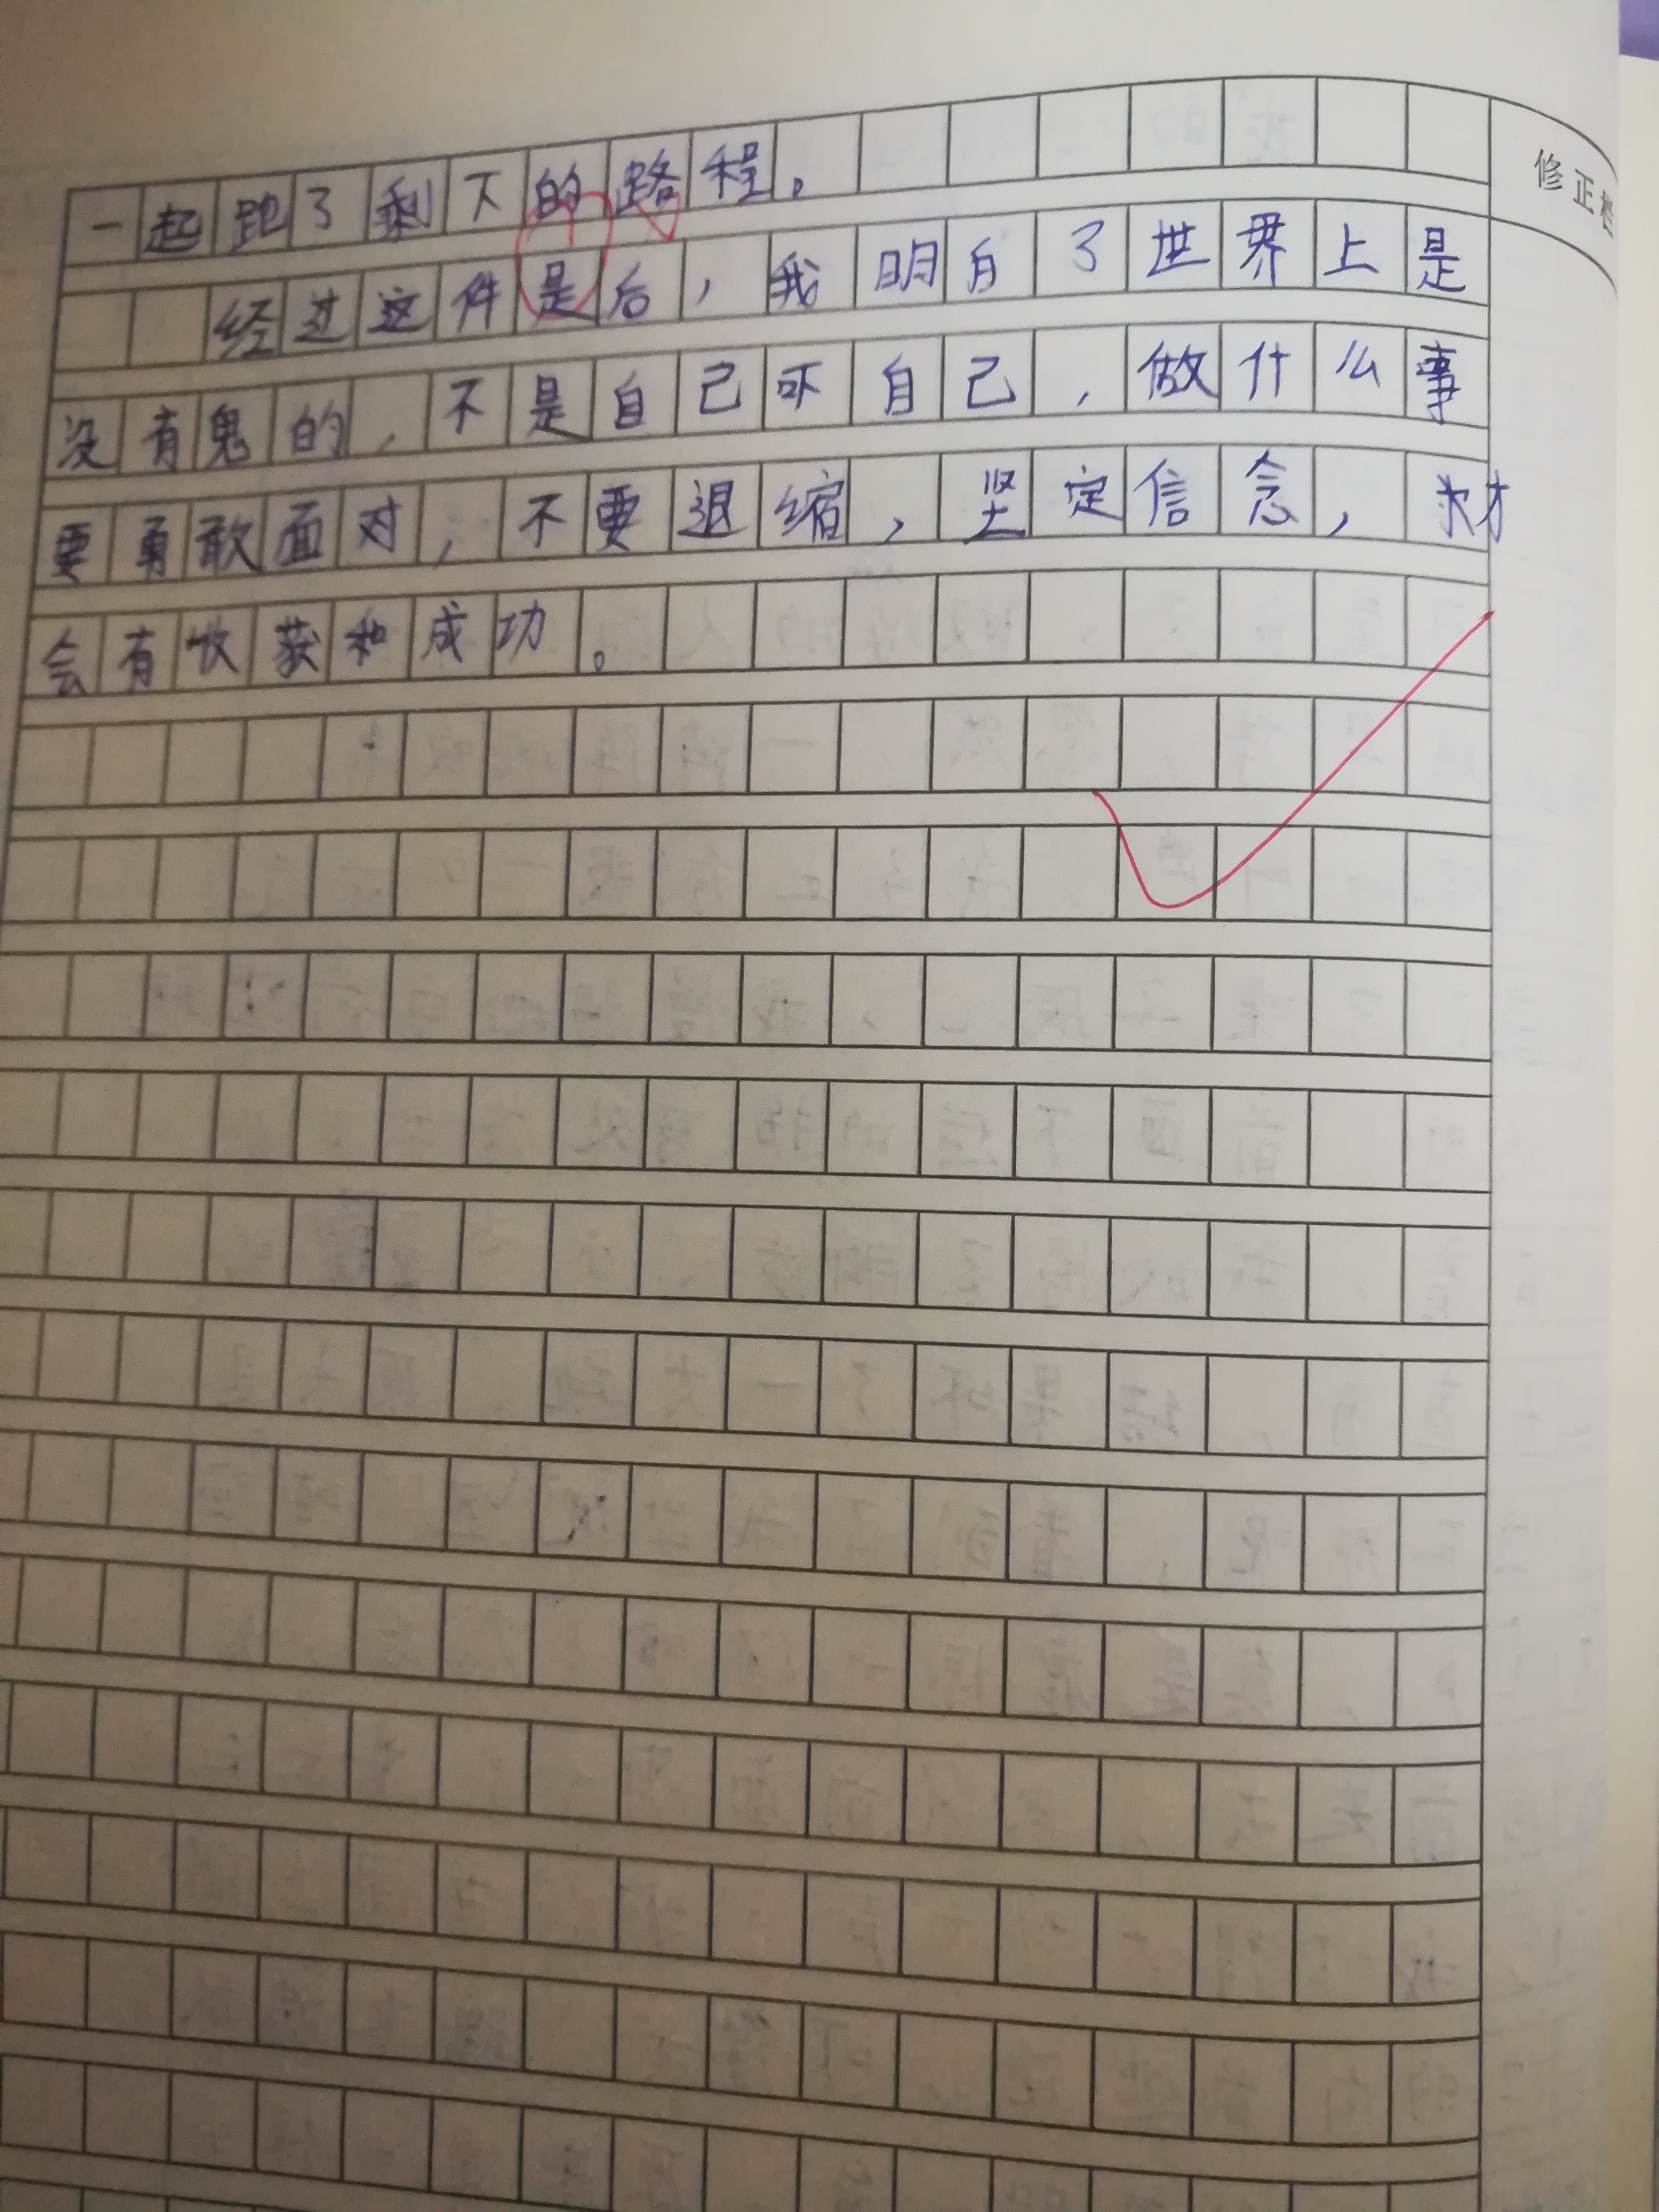 一起跑了剩下的路程。
经过这件是后，我明白了世界上是
没有鬼的，不是自己吓自己，做什么事
要勇敢面对，不要退缩，坚定信念，求才
会有收获和成功。
修正栏